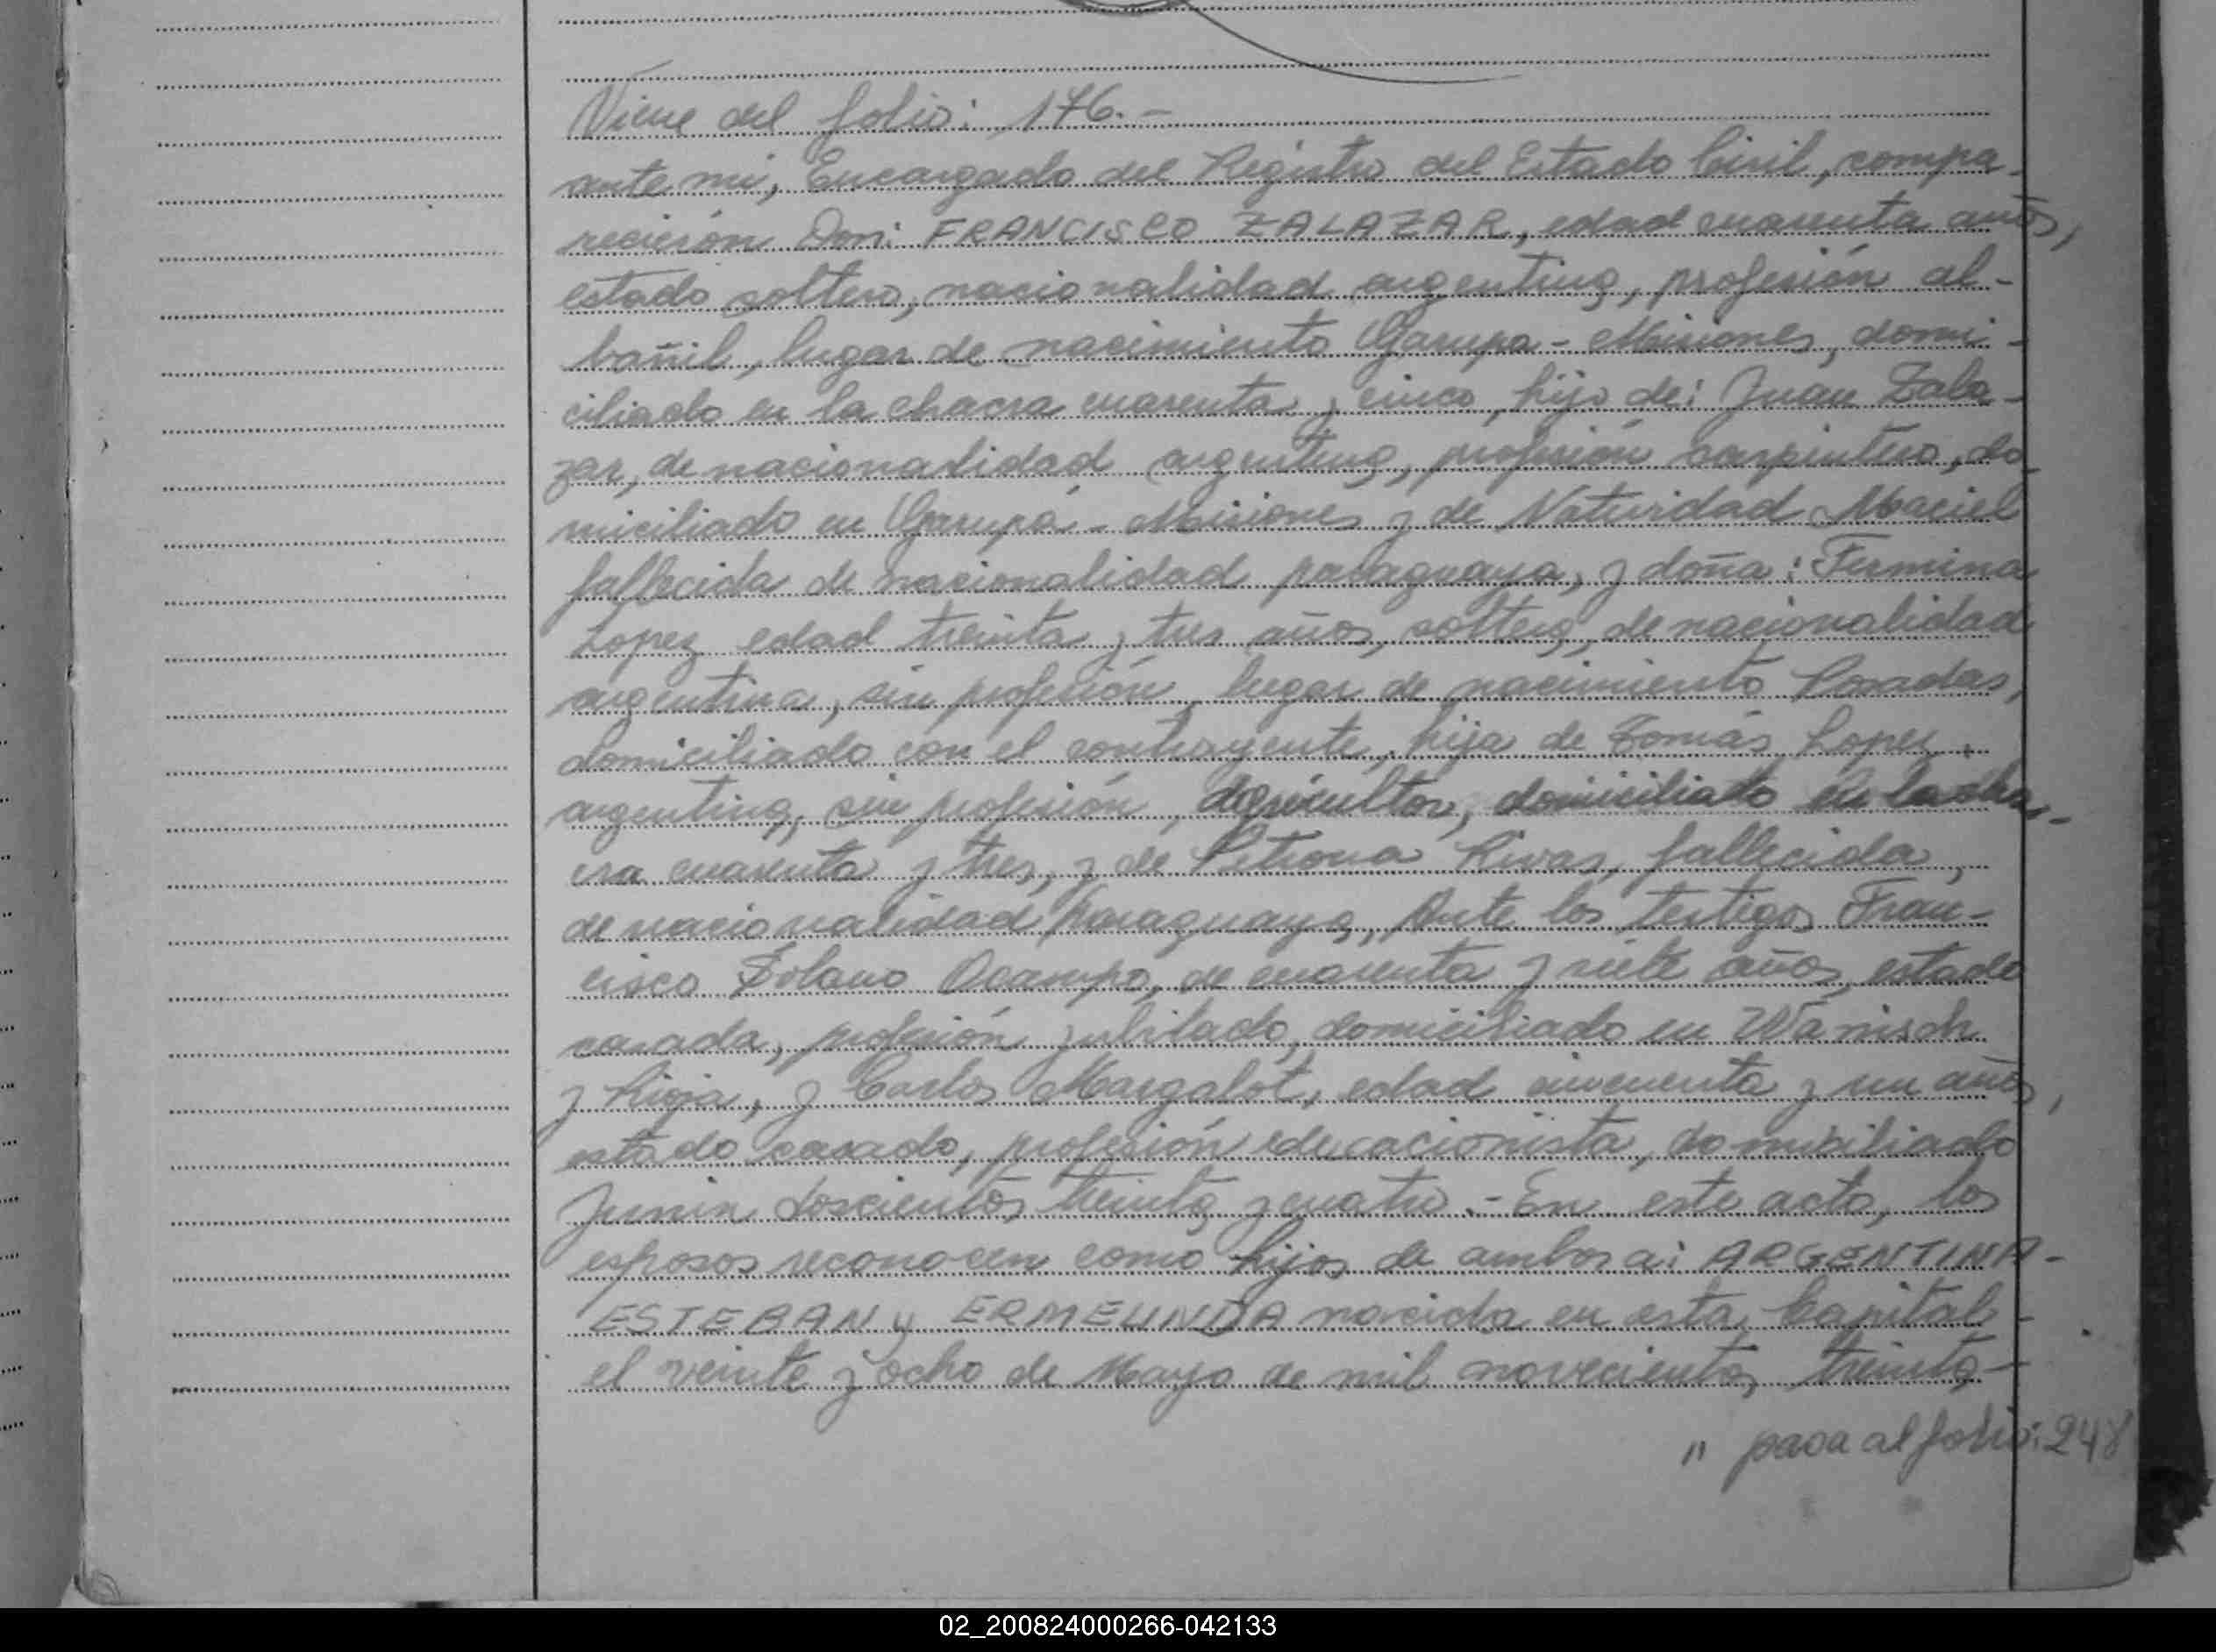 Viene del folio: 176.-
ante mi, Encargado del Registro del Estado Civil, compa-
recieron Don: FRANCISCO ZALAZAR, edad cuarenta años,
estado soltero, nacionalidad argentino, profesión al-
bañil, lugar de nacimiento Garupa - Misiones, domi-
ciliado en la chacra cuarenta y cinco, hijo de: Juan Zala-
zar, de nacionalidad argentino, profesión carpintero, do-
miciliado en Garupá - Misiones y de Natividad Maciel
fallecida de nacionalidad paraguaya, y doña: Fermina
Lopez edad treinta y tres años, soltera, de nacionalidad
argentina, sin profesión, lugar de nacimiento Posadas,
domiciliado con el contrayente, hija de Tomás Lopez,
argentino, sin profesión, agricultor, domiciliado en la cha-
cra cuarenta y tres, y de Petrona Rivas, fallecida,
de nacionalidad paraguaya, Ante los testigos Fran-
cisco Solano Ocampo, de cuarenta y siete años, estado
casada, profesión jubilado, domiciliado en Wanisch
y Rioja, y Carlos Margalot, edad cincuenta y un años,
estado casado, profesión educacionista, domiciliado
Junin doscientos treinta y cuatro.- En este acto, los
esposos reconocen como hijos de ambos a: ARGENTINA-
ESTEBAN y ERMELINDA nacida en esta Capital-
el veinte y ocho de Mayo de mil novecientos treinta-
" pasa al folio: 248
02_200824000266-042133